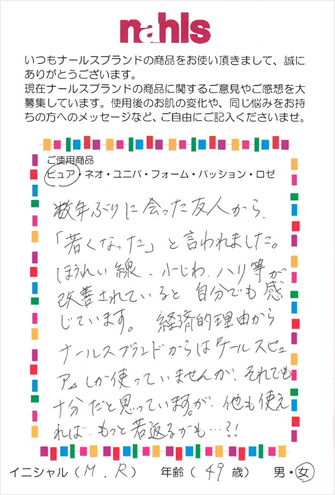 nahls
いつもナールスブランドの商品をお使い頂きまして、誠に
ありがとうございます。
現在ナールスブランドの商品に関するご意見やご感想を大
募集しています。使用後のお肌の変化や、同じ悩みをお持
ちの方へのメッセージなど、ご自由にご記入くださいませ。
ご使用商品
ピュア・ネオ・ユニバ・フォーム・パッション・ロゼ
数年ぶりに会った友人から、
「若くなった」と言われました。
ほうれい線、小じわ、ハリ等が
改善されていると自分でも感
じています。経済的理由から
ナールスブランドからはナールスピュ
アしか使っていませんが、それでも
十分だと思っていますが、他も使え
れば、もっと若返るかも…?!
イニシャル(M.R) 年齢(49歳) 男・女